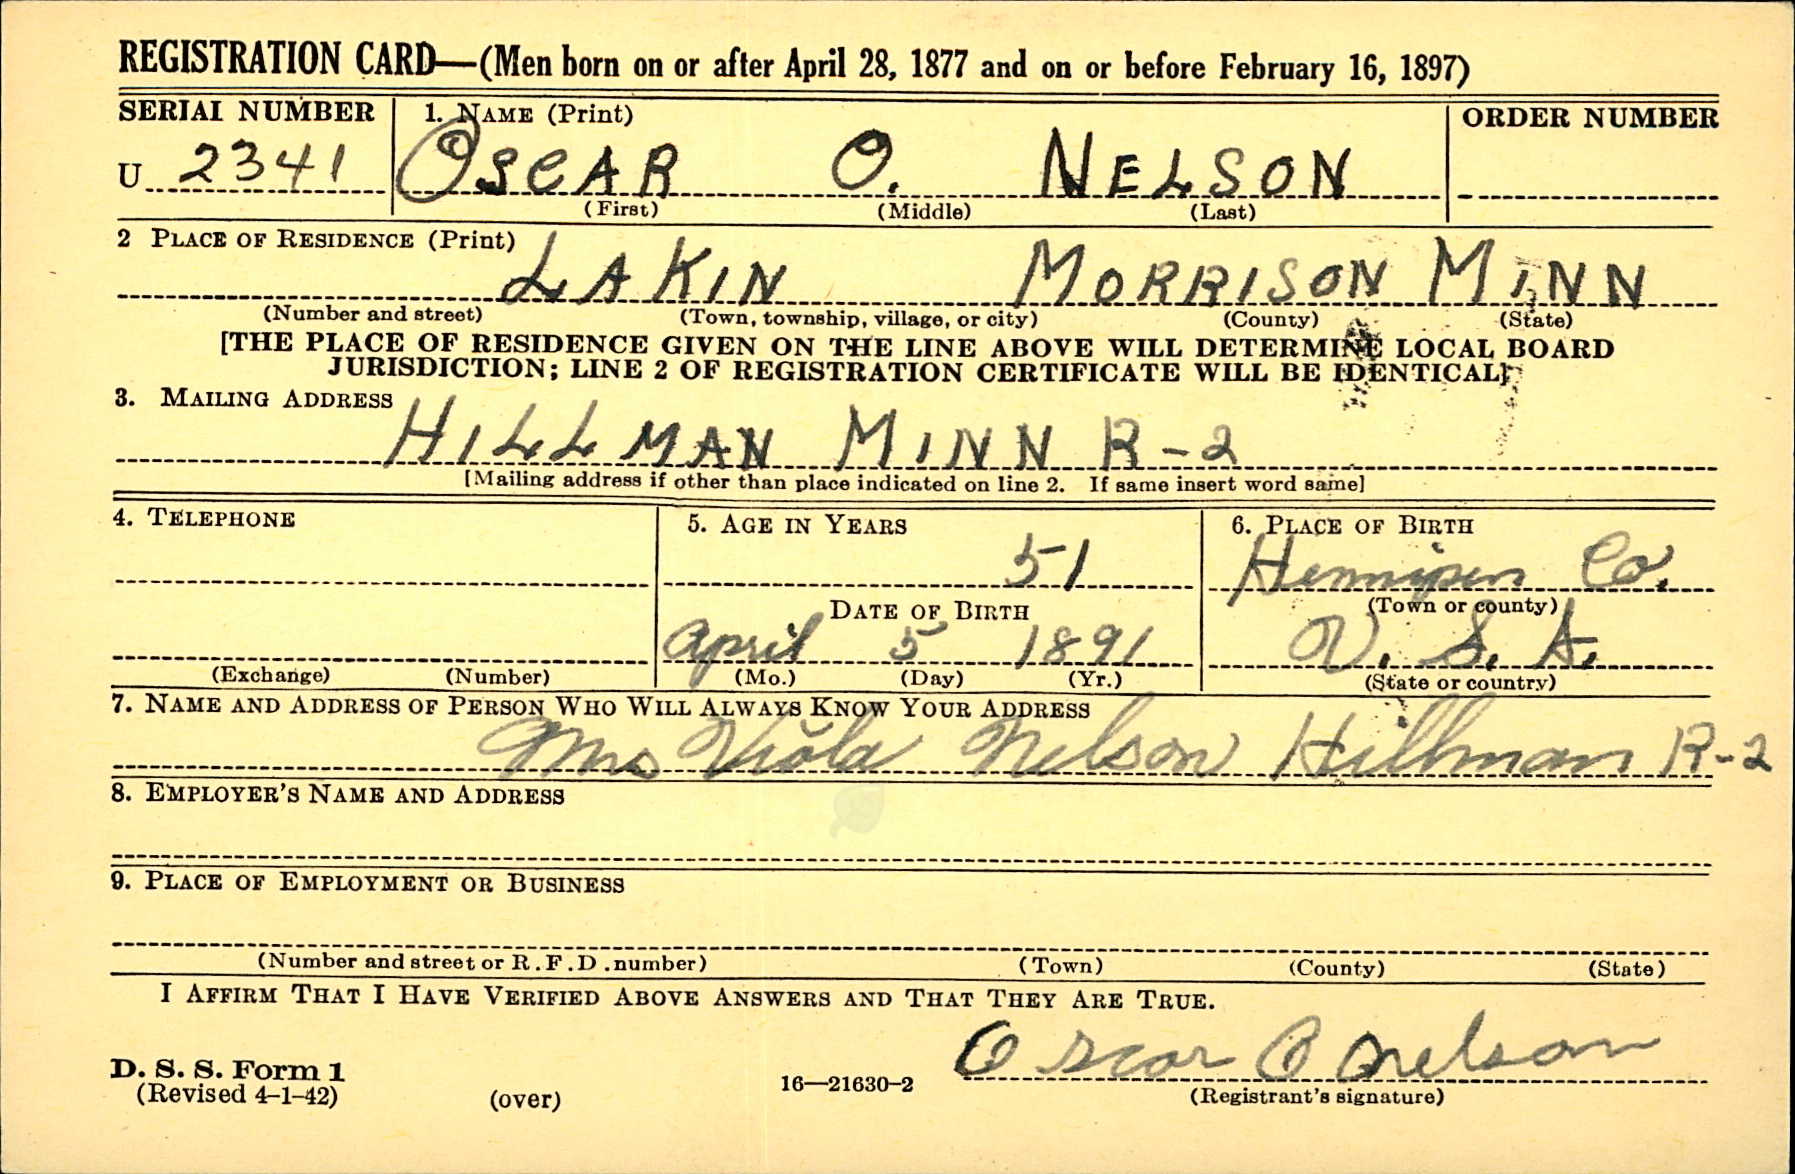 REGISTRATION CARD—(Men born on or after April 28, 1877 and on or before February 16, 1897)
SERIAL NUMBER 1. NAME (Print) ORDER NUMBER
U 2341 OSCAR O. NELSON
(First) (Middle) (Last)
2 PLACE OF RESIDENCE (Print)
LAKIN MORRISON MINN
(Number and street) (Town, township, village, or city) (County) (State)
[THE PLACE OF RESIDENCE GIVEN ON THE LINE ABOVE WILL DETERMINE LOCAL BOARD
JURISDICTION; LINE 2 OF REGISTRATION CERTIFICATE WILL BE IDENTICAL]
3. MAILING ADDRESS
HILLMAN MINN R-2
[Mailing address if other than place indicated on line 2. If same insert word same]
4. TELEPHONE 5. AGE IN YEARS 6. PLACE OF BIRTH
51 Hennipen Co.
DATE OF BIRTH (Town or county)
April 5 1891 U. S. A.
(Exchange) (Number) (Mo.) (Day) (Yr.) (State or country)
7. NAME AND ADDRESS OF PERSON WHO WILL ALWAYS KNOW YOUR ADDRESS
Mrs Viola Nelson Hillman R-2
8. EMPLOYER'S NAME AND ADDRESS
9. PLACE OF EMPLOYMENT OR BUSINESS
(Number and street or R.F.D. number) (Town) (County) (State)
I AFFIRM THAT I HAVE VERIFIED ABOVE ANSWERS AND THAT THEY ARE TRUE.
Oscar O Nelson
D. S. S. Form 1
(Revised 4-1-42) (over) 16—21630-2 (Registrant's signature)